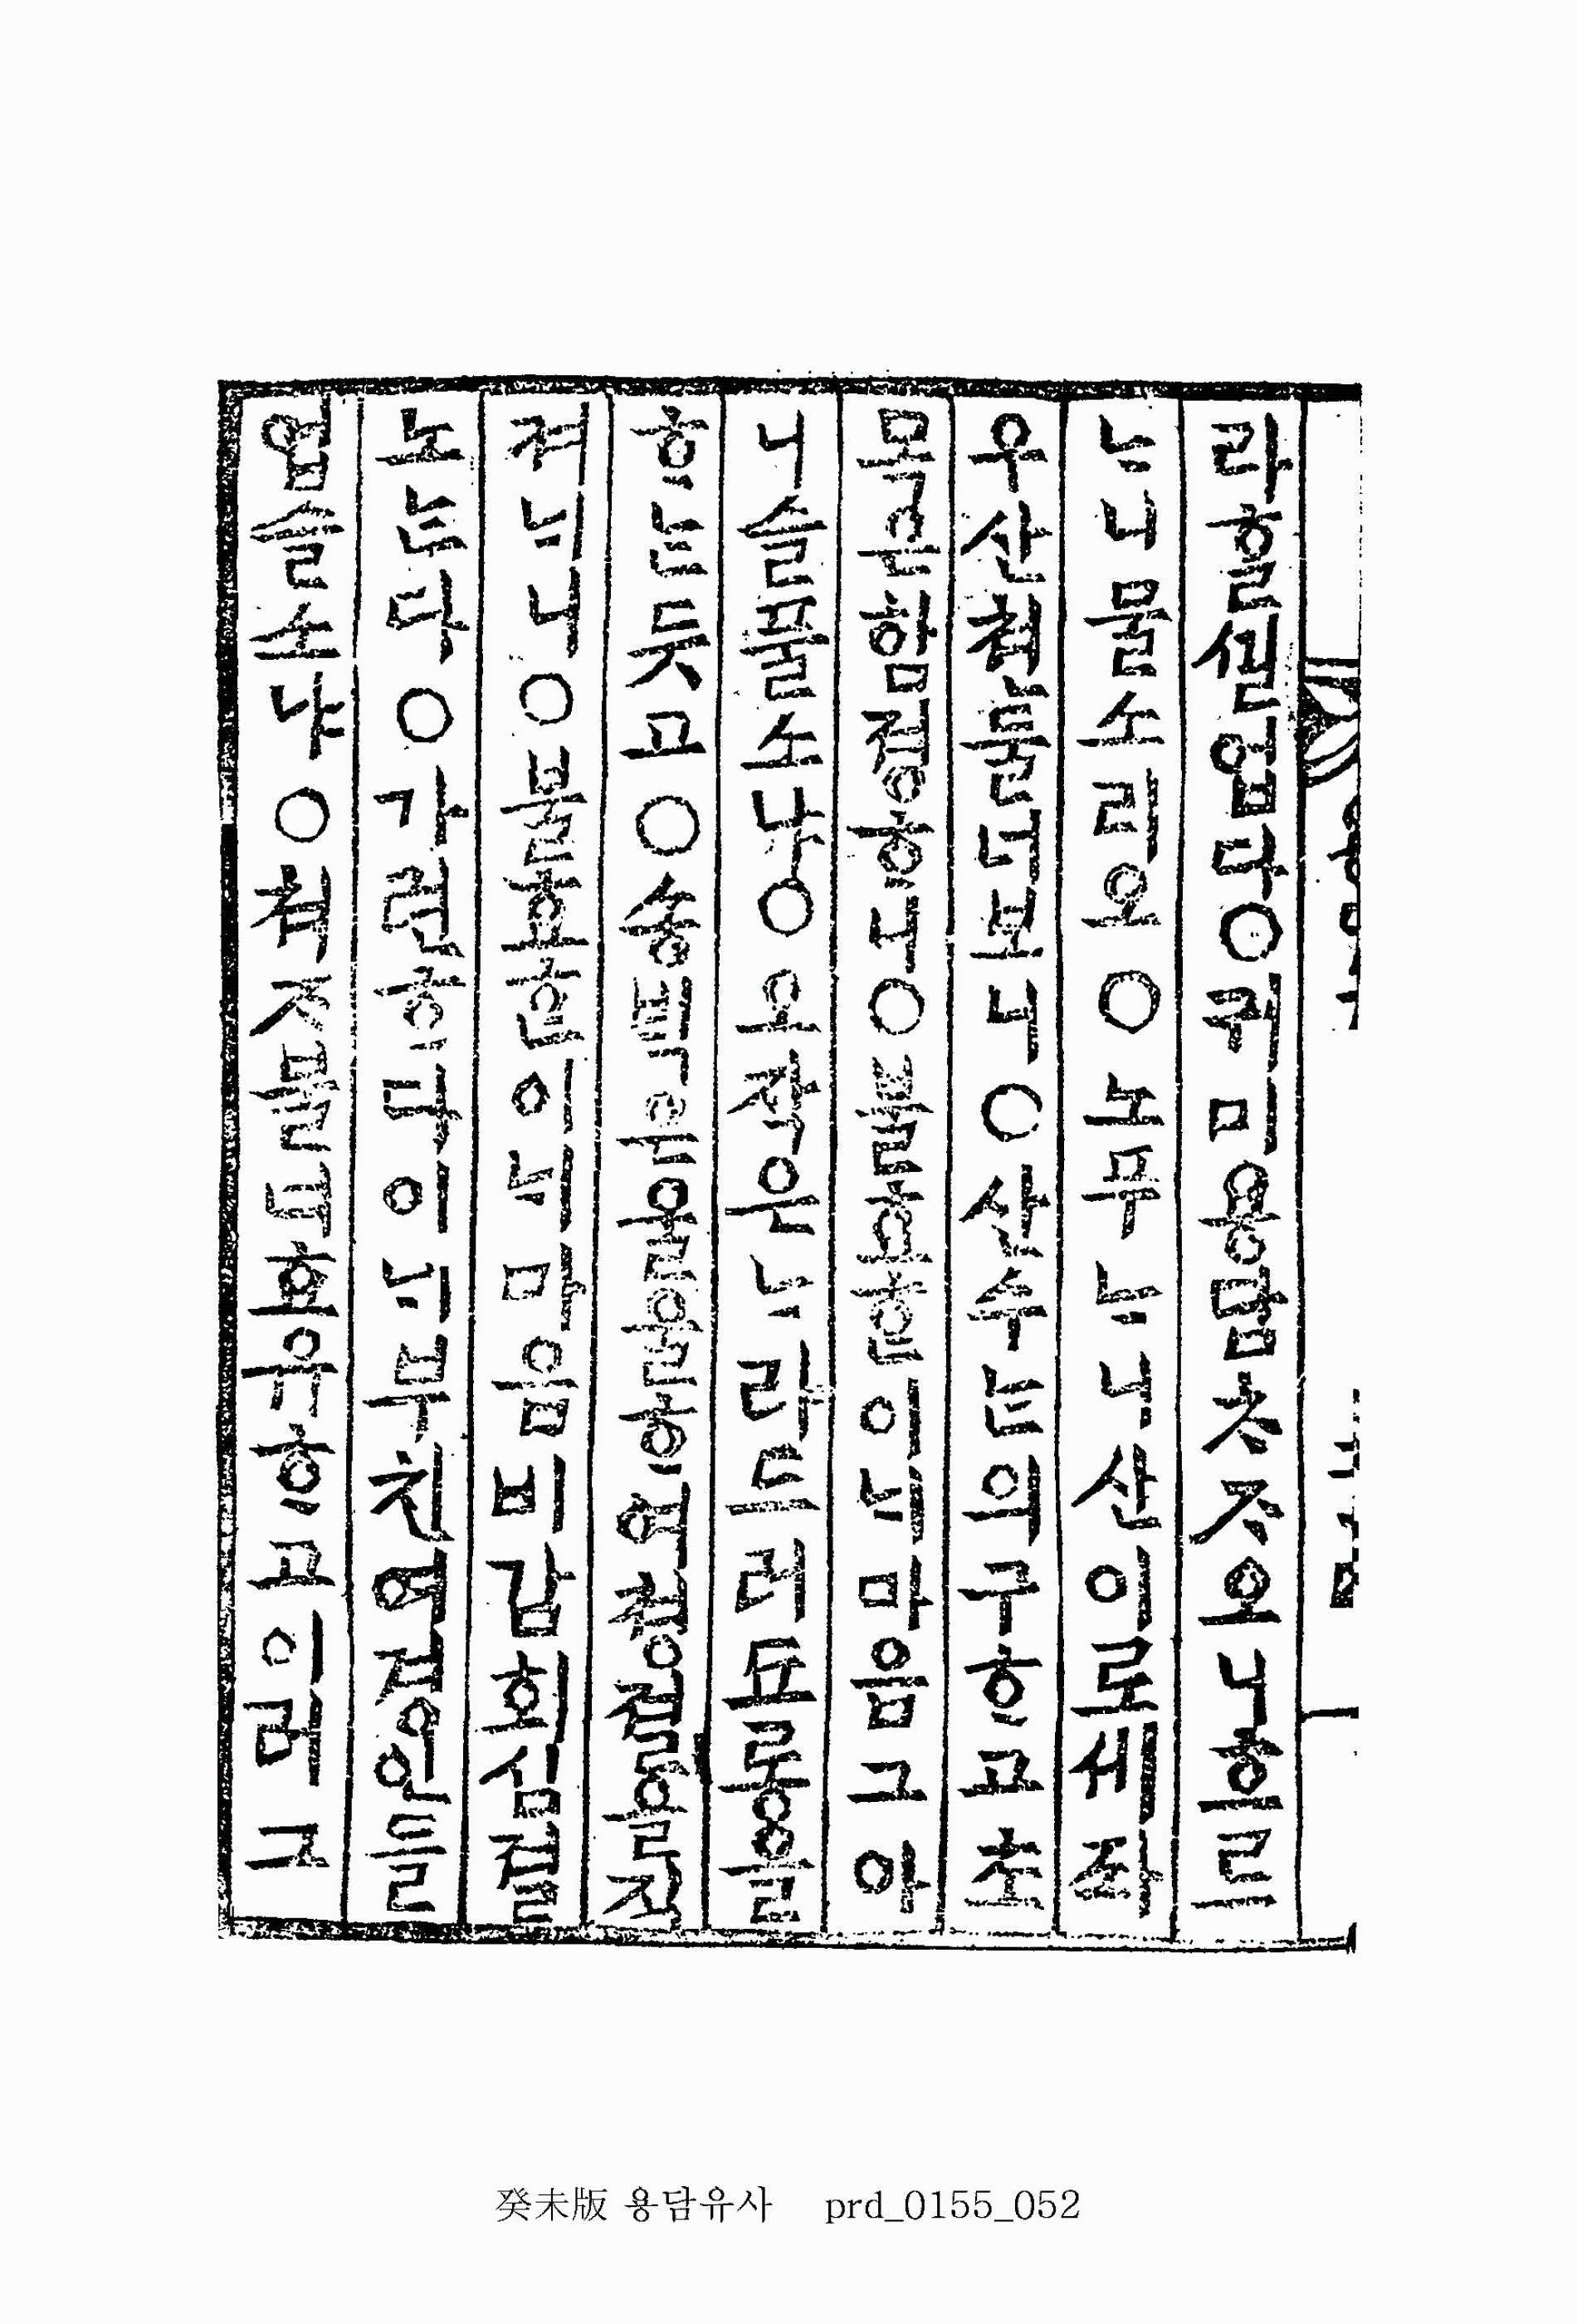 라흘ᄭᅵᆯ업다○귀미용담ᄎᆞᄌᆞ오니흐르
ᄂᆞ니물소리오○노푸ᄂᆞ니산이로세좌
우산쳔둘너보니○산수는의구ᄒᆞ고초
목은함졍ᄒᆞ니○불효ᄒᆞᆫ이ᄂᆡ마음그아
니슬풀소냐○오작은ᄂᆞ라드러됴롱을
ᄒᆞ는듯고○송ᄇᆡᆨ은울울ᄒᆞ여쳥졀을직
켜ᄂᆡ니○불효ᄒᆞᆫ이ᄂᆡ마음비감회심졀
노는다○가련ᄒᆞ다이ᄂᆡ부친여경인들
업슬소냐○쳐ᄌᆞ불너효유ᄒᆞ고이러그
癸未版 용담유사 prd_0155_052